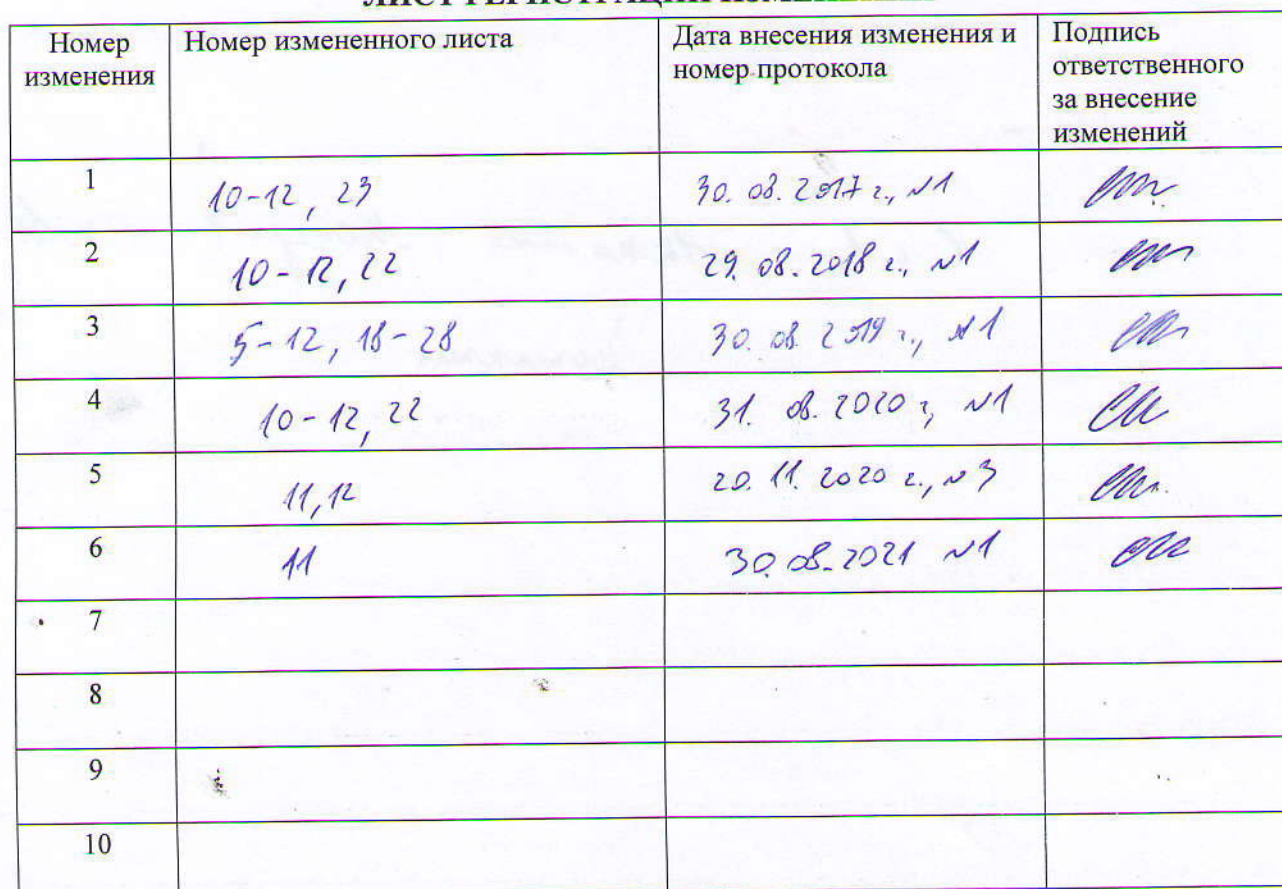 ЛИСТ РЕГИСТРАЦИИ ИЗМЕНЕНИЙ
Номер изменения
Номер измененного листа
Дата внесения изменения и номер протокола
Подпись ответственного за внесение изменений
1 10-12, 23 30.08.2017 г., №1
2 10-12, 22 29.08.2018 г., №1
3 5-12, 18-28 30.08.2019 г., №1
4 10-12, 22 31.08.2020 г, №1
5 11,12 20.11.2020 г., №3
6 11 30.08.2021 №1
7
8
9
10